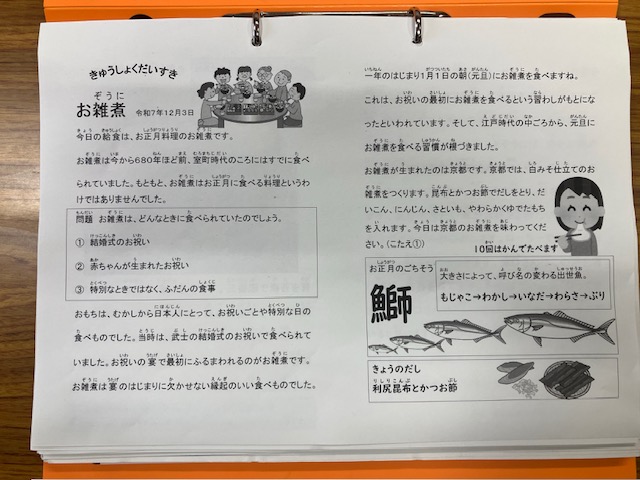 きゅうしょくだいすき
お雑煮 令和7年12月3日
今日の給食は、お正月料理のお雑煮です。
お雑煮は今から680年ほど前、室町時代のころにはすでに食べ
られていました。もともと、お雑煮はお正月に食べる料理というわ
けではありませんでした。
問題 お雑煮は、どんなときに食べられていたのでしょう。
① 結婚式のお祝い
② 赤ちゃんが生まれたお祝い
③ 特別なときではなく、ふだんの食事
おもちは、むかしから日本人にとって、お祝いごとや特別な日の
食べものでした。当時は、武士の結婚式のお祝いで食べられて
いました。お祝いの宴で最初にふるまわれるのがお雑煮です。
お雑煮は宴のはじまりに欠かせない縁起のいい食べものでした。
一年のはじまり1月1日の朝(元旦)にお雑煮を食べますね。
これは、お祝いの最初にお雑煮を食べるという習わしがもとにな
ったといわれています。そして、江戸時代の中ごろから、元旦に
お雑煮を食べる習慣が根づきました。
お雑煮が生まれたのは京都です。京都では、白みそ仕立てのお
雑煮をつくります。昆布とかつお節でだしをとり、だ
いこん、にんじん、さといも、やわらかくゆでたもち
を入れます。今日は京都のお雑煮を味わってくだ
さい。(こたえ①)
10回はかんでたべます
お正月のごちそう
鰤
大きさによって、呼び名の変わる出世魚。
もじゃこ→わかし→いなだ→わらさ→ぶり
きょうのだし
利尻昆布とかつお節